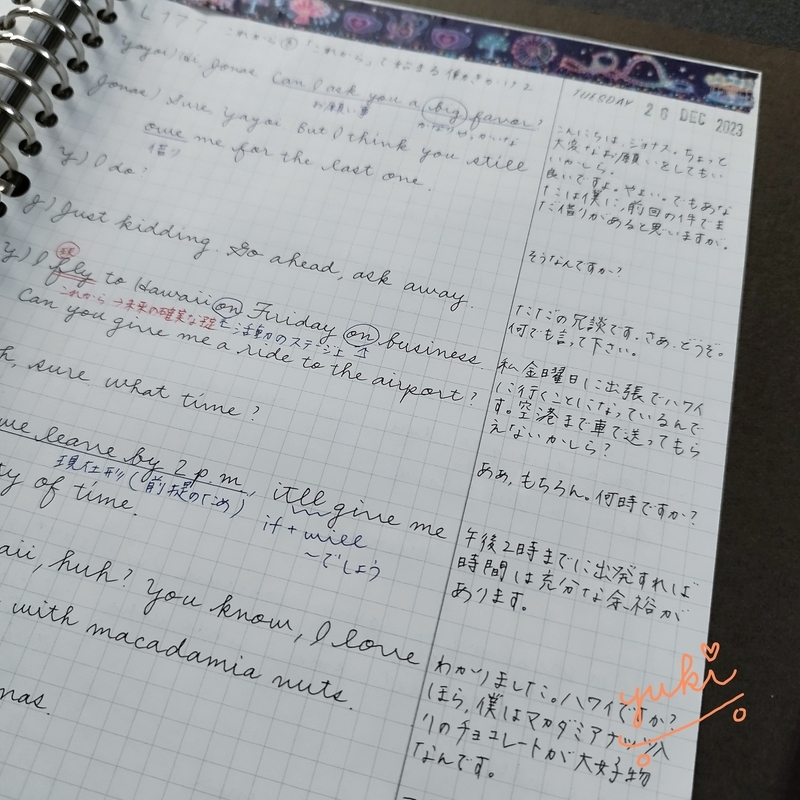 L 177 これから⑧「これから」って始まる働きかけ2
TUESDAY 26 DEC 2023
Yayoi) Hi, Jonas. Can I ask you a big favor?
お願い事
かなりやっかいな
Jonas) Sure, Yayoi. But I think you still
owe me for the last one.
借り
Y) I do?
J) Just kidding. Go ahead, ask away.
Y) I fly to Hawaii on Friday on business.
これから→未来の確実な予定
活動のステージ上
Can you give me a ride to the airport?
h, sure what time?
we leave by 2 p m, it'll give me
現在形(前提のため)
if + will
〜でしょう
ty of time.
aii, huh? You know, I love
with macadamia nuts.
nas.
こんにちは、ジョナス。ちょっと
大変なお願いをしてもい
いかしら。
良いですよ。やよい。でもあな
たは僕に、前回の件でま
だ借りがあると思いますが。
そうなんですか?
ただの冗談です。さあ、どうぞ。
何でも言って下さい。
私金曜日に出張でハワイ
に行くことになっているんで
す。空港まで車で送ってもら
えないかしら?
ああ、もちろん。何時ですか?
午後2時までに出発すれば
時間は充分な余裕が
あります。
わかりました。ハワイですか?
ほら、僕はマカダミアナッツ入
りのチョコレートが大好物
なんです。
yuki